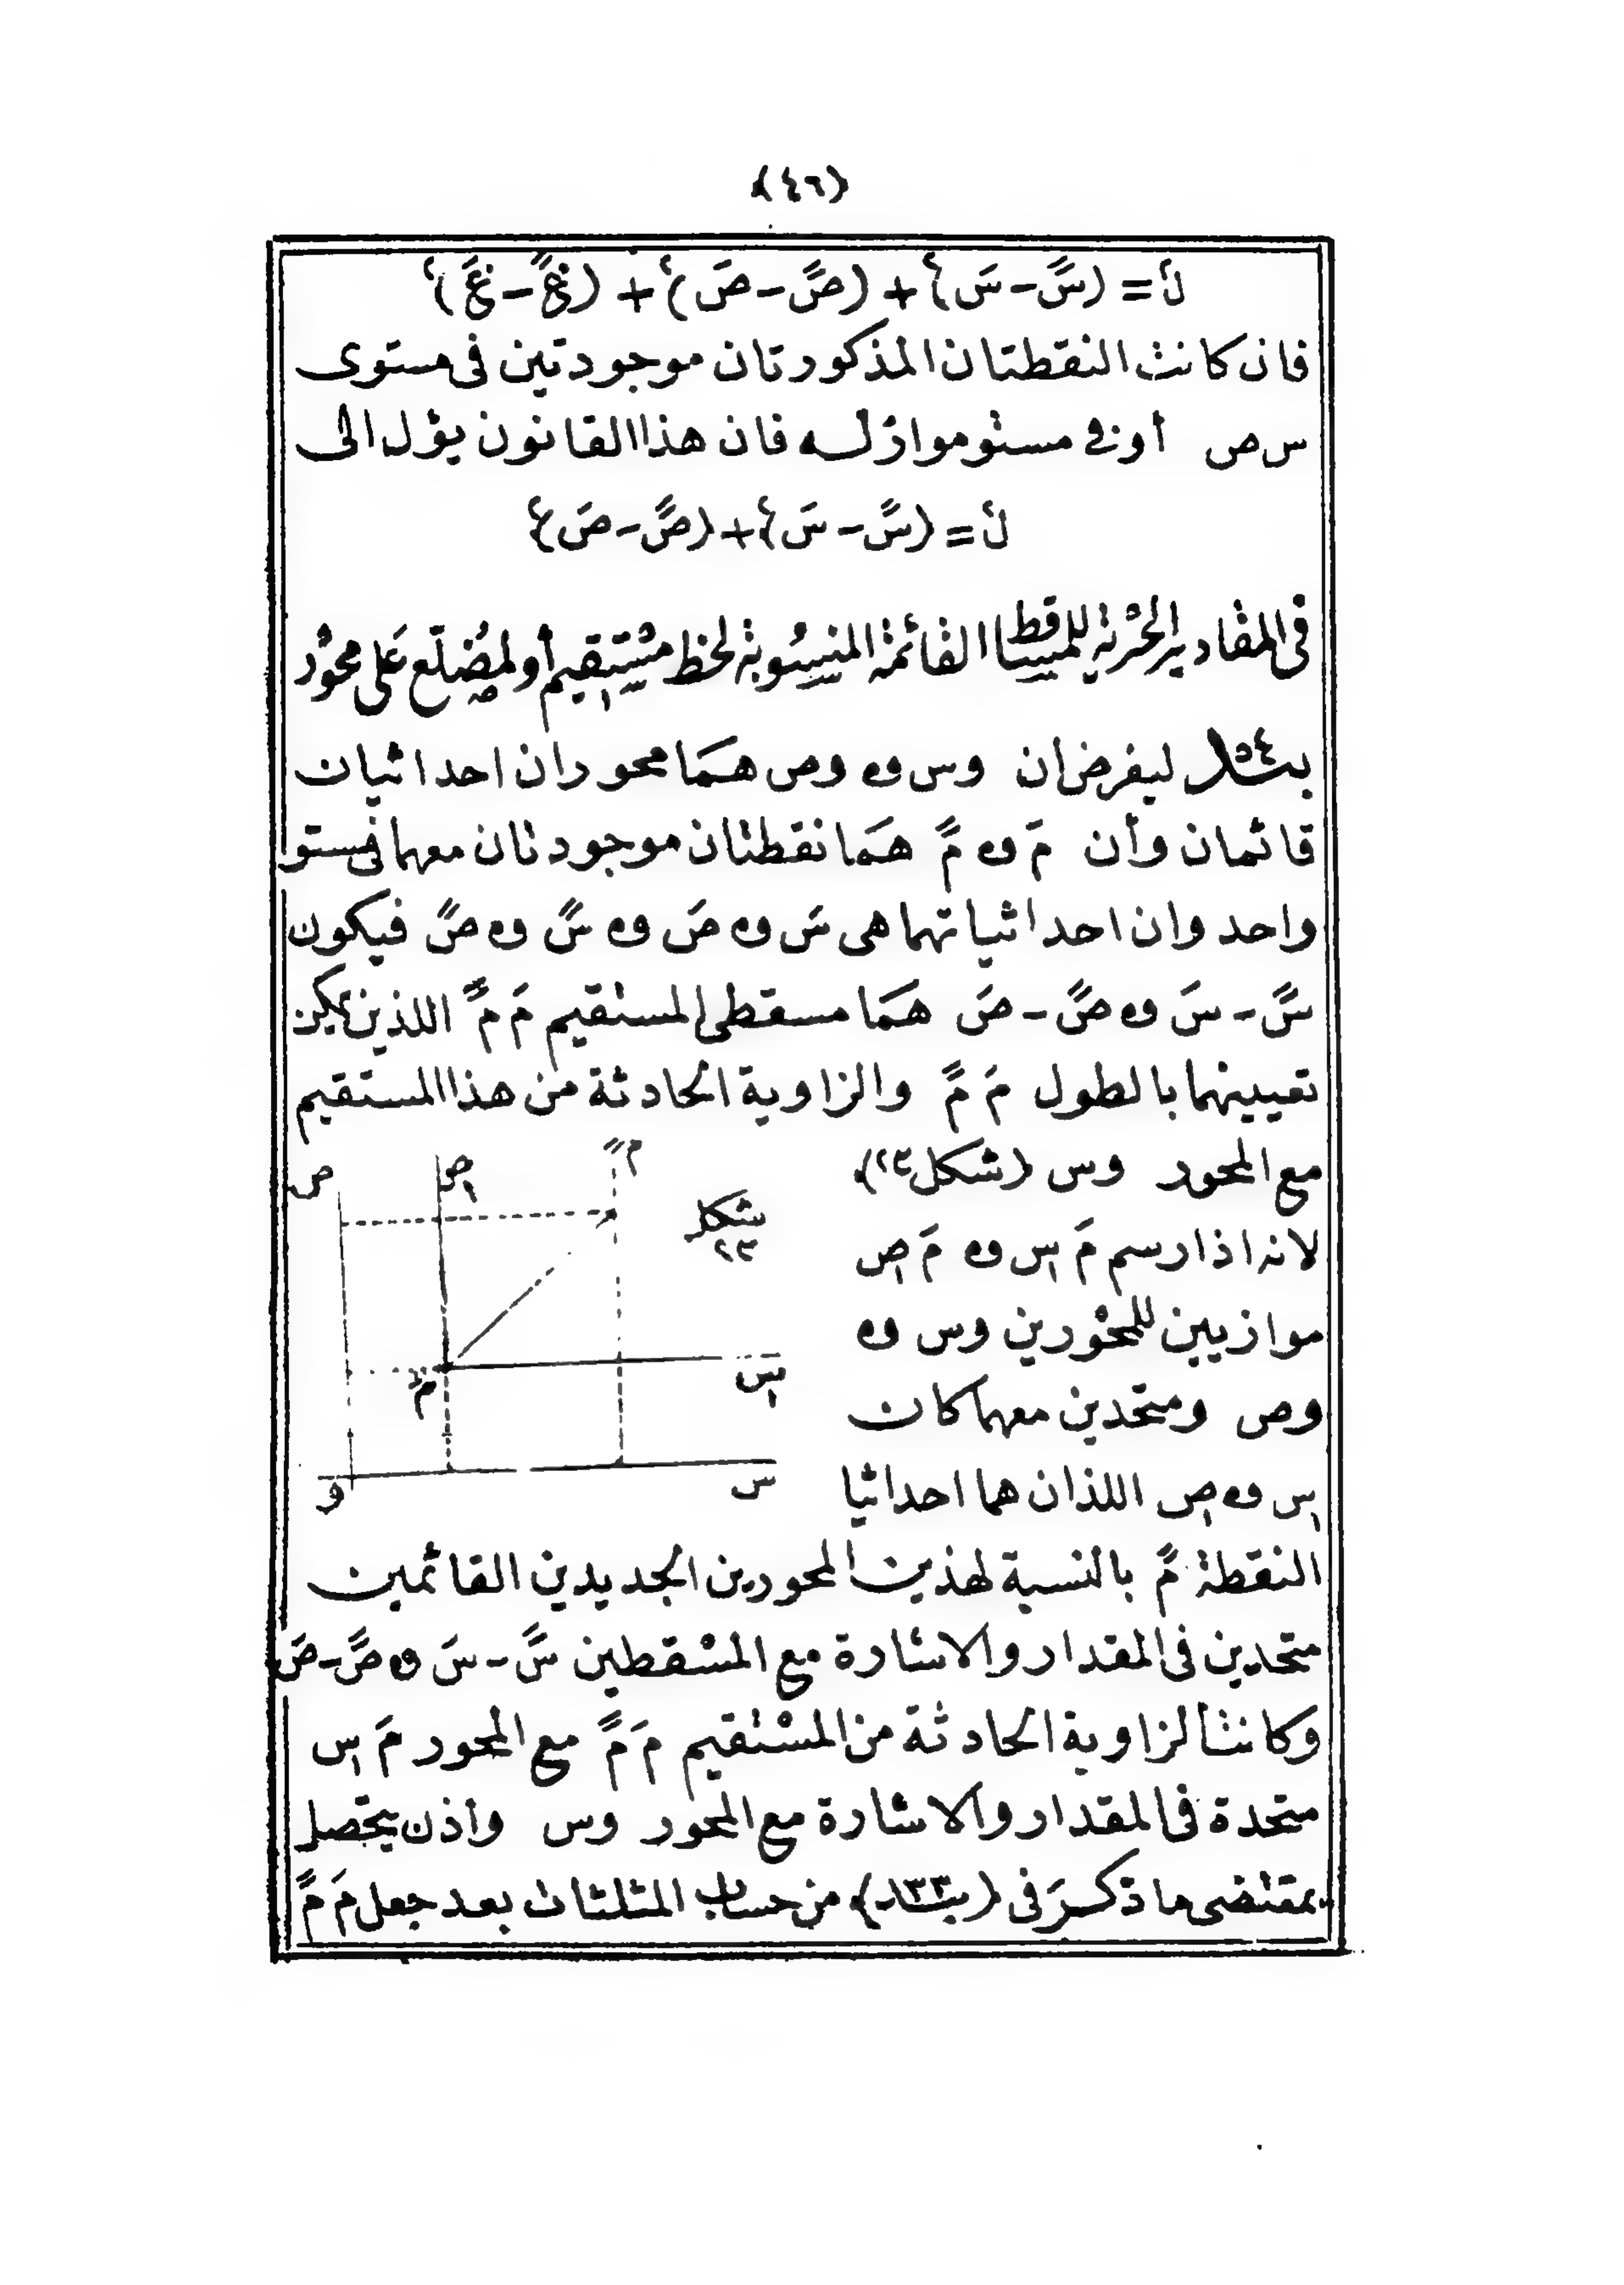 (٤٦)
ل٢ = (سً - سَ)٢ + (صً - صَ)٢ + (عً - عَ)٢
فان كانت النقطتان المذكورتان موجودتين فى مستوى
س ص أو فى مستو مواز له فان هذا القانون يؤل الى
ل٢ = (سً - سَ)٢ + (صً - صَ)٢
فى المقادير الجبرية للمساقط القائمة المنسوبة لخط مستقيم أو لمضلع على محور
بند ٥٤ ليفرض أن وس و وص هما محوران احداثيان
قائمان وأن مَ و مً هما نقطتان موجودتان معهما فى مستو
واحد وان احداثياتهما هى سَ و صَ و سً و صً فيكون
سً - سَ و صً - صَ هما مسقطى المستقيم مَ مً اللذين يمكن
تعيينهما بالطول مَ مً والزاوية الحادثة من هذا المستقيم
مع المحور وس (شكل ٢٣)
لانه اذا رسم مَ س١ و مَ ص١
موازيين للمحورين وس و
وص ومتحدين معهما كان
س١ و ص١ اللذان هما احداثيا
ص ص١ مً
شكل
٢٣
مَ س١
و س
النقطة مً بالنسبة لهذين المحورين الجديدين القائمين
متحدين فى المقدار والاشارة مع المسقطين سً - سَ و صً - صَ
وكانت الزاوية الحادثة من المستقيم مَ مً مع المحور مَ س١
متحدة فى المقدار والاشارة مع المحور وس وأذن يتحصل
بمقتضى ما ذكر فى (بند ١٣٣) من حساب المثلثات بعد جعل مَ مً